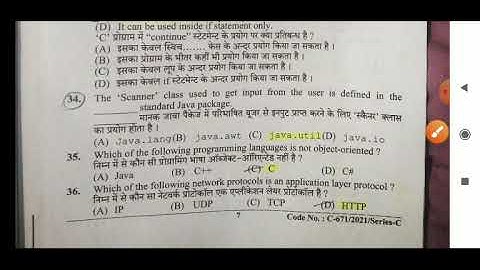 (D) It can be used inside if statement only.
'C' प्रोग्राम में "continue" स्टेटमेन्ट के प्रयोग पर क्या प्रतिबन्ध है ?
(A) इसका केवल स्विच....... केस के अन्दर प्रयोग किया जा सकता है ।
(B) इसका प्रोग्राम के भीतर कहीं भी प्रयोग किया जा सकता है ।
(C) इसका केवल लूप के अन्दर प्रयोग किया जा सकता है ।
(D) इसका केवल if स्टेटमेन्ट के अन्दर प्रयोग किया जा सकता है ।
34. The 'Scanner' class used to get input from the user is defined in the
standard Java package.
मानक जावा पैकेज में परिभाषित यूजर से इनपुट प्राप्त करने के लिए 'स्कैनर' क्लास
का प्रयोग होता है ।
(A) Java.lang (B) java.awt (C) java.util (D) java.io
35. Which of the following programming languages is not object-oriented ?
निम्न में से कौन सी प्रोग्रामिंग भाषा ऑब्जेक्ट-ओरिएन्टेड नहीं है ?
(A) Java (B) C++ (C) C (D) C#
36. Which of the following network protocols is an application layer protocol ?
निम्न में से कौन सा नेटवर्क प्रोटोकॉल एक एप्लीकेशन लेयर प्रोटोकॉल है ?
(A) IP (B) UDP (C) TCP (D) HTTP
7 Code No. : C-671/2021/Series-C